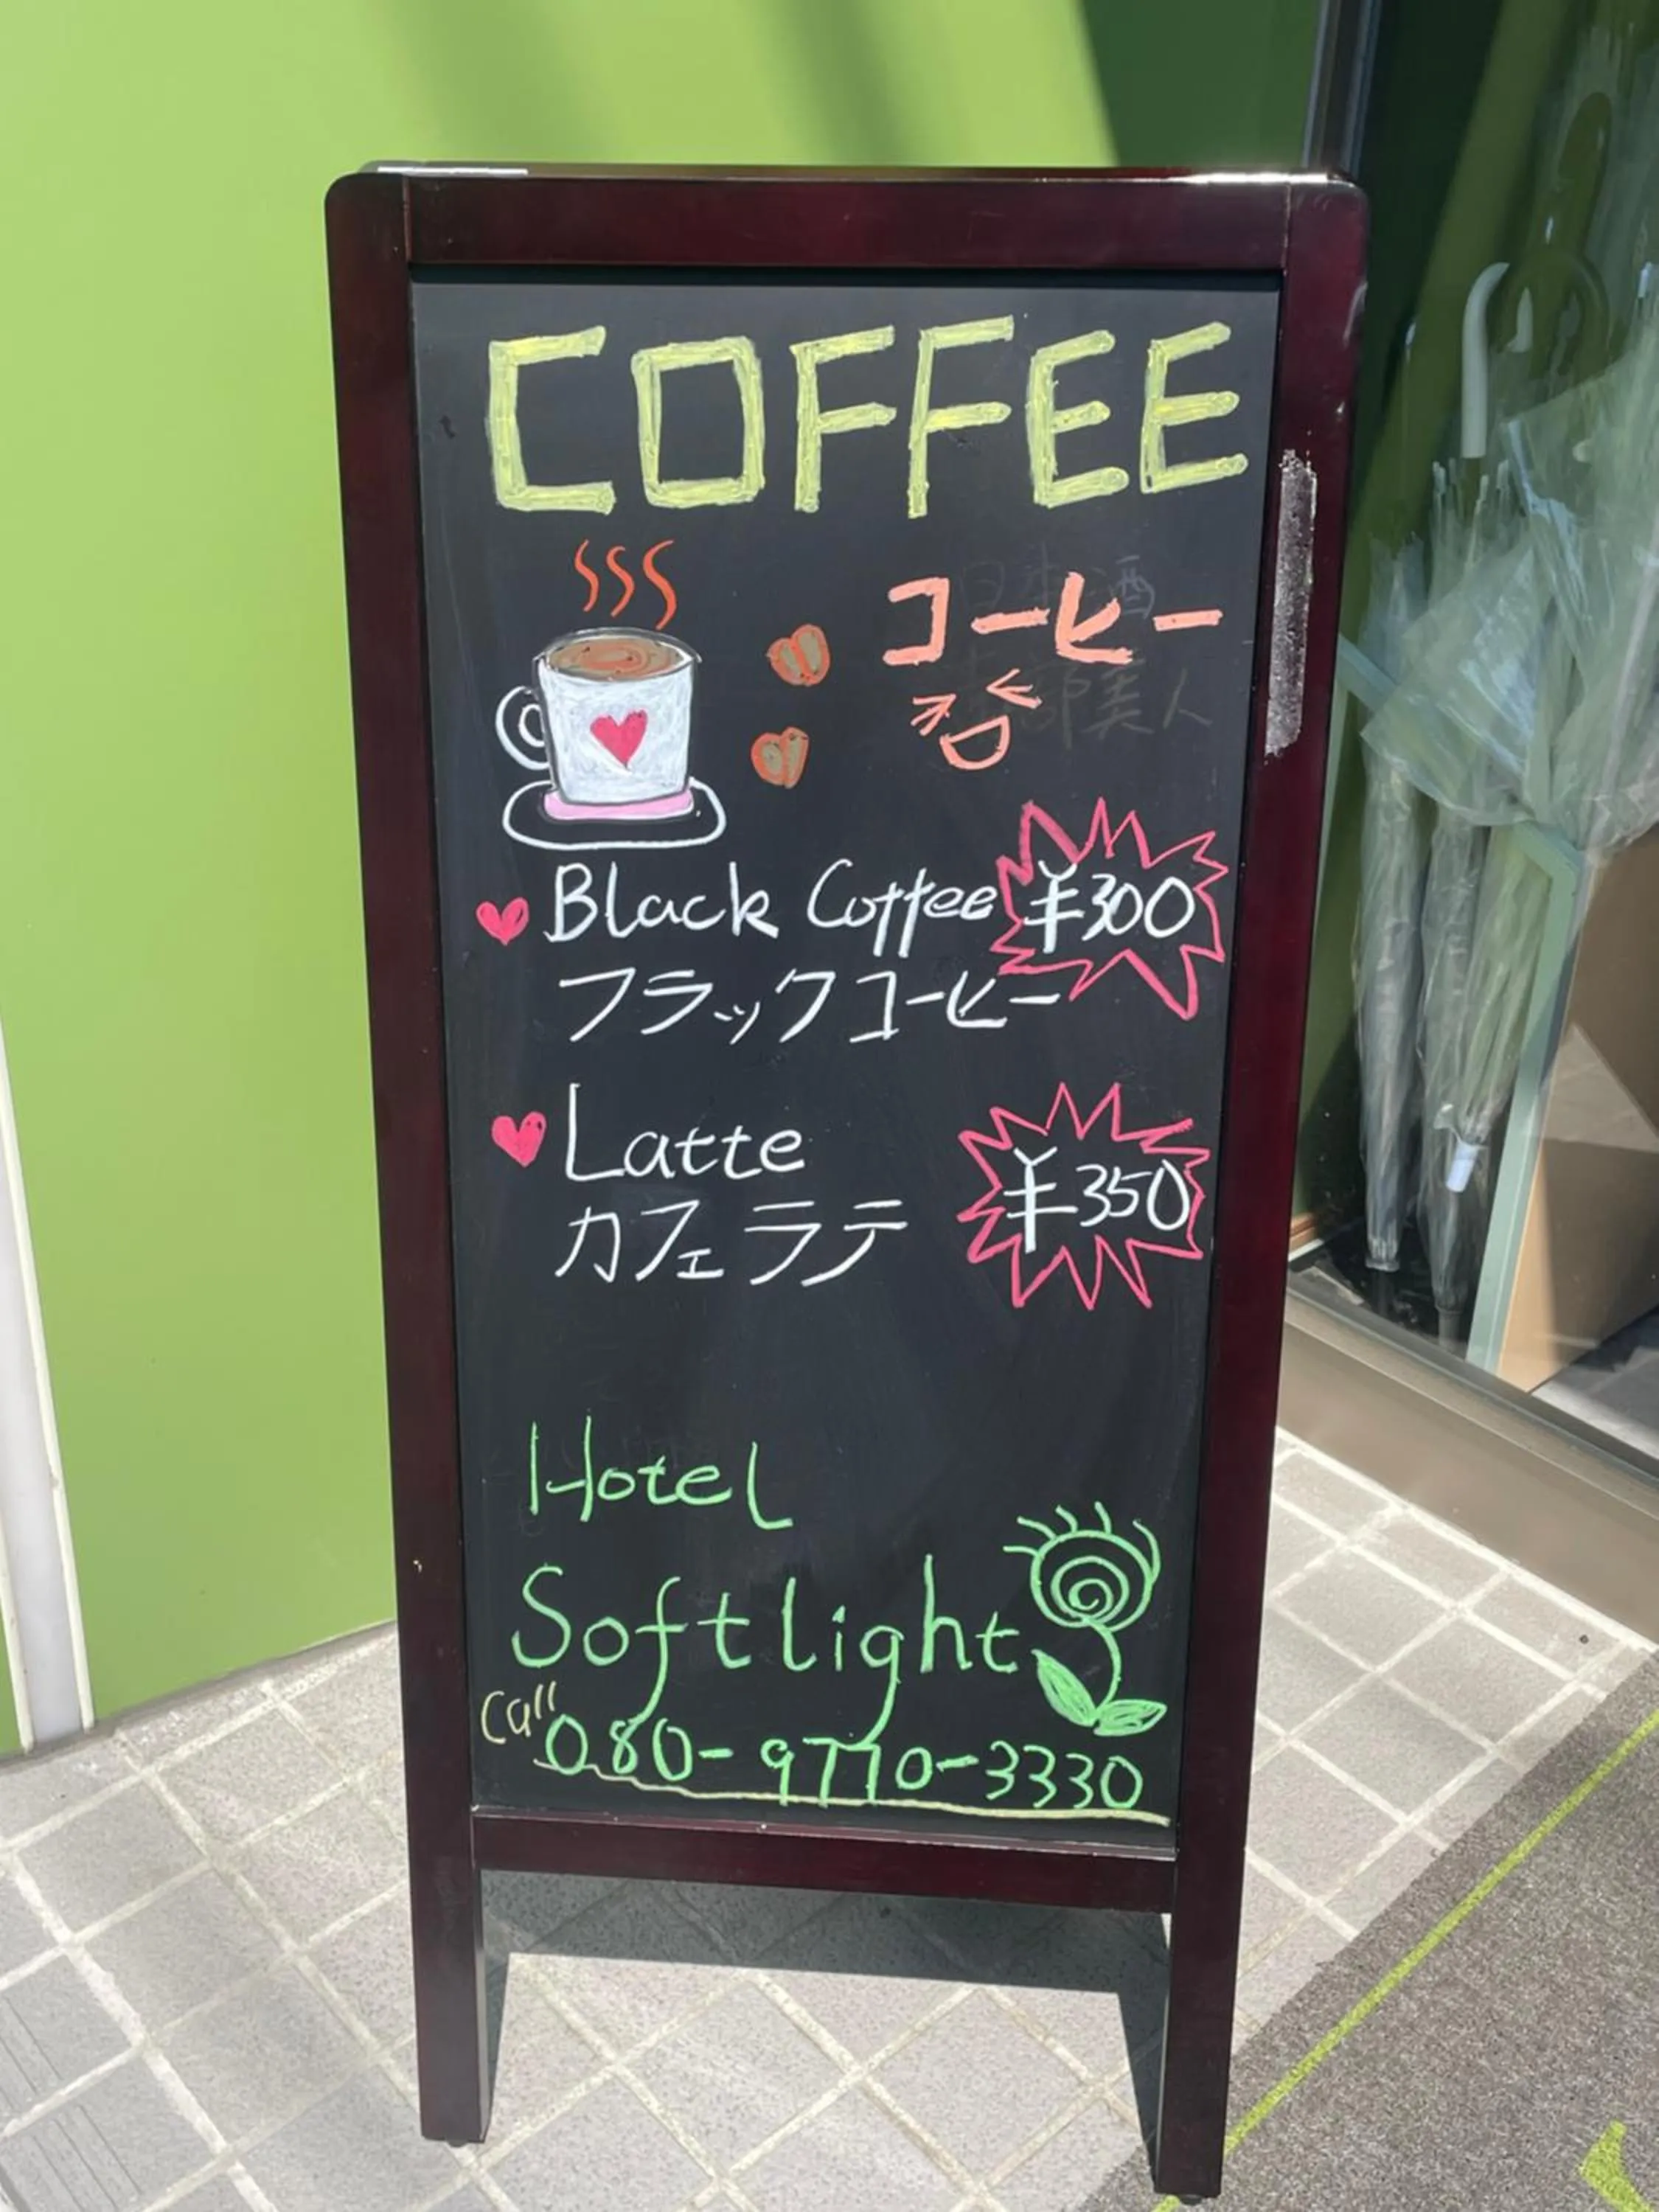 COFFEE
コーヒー
Black Coffee ¥300
フラックコーヒー
Latte
カフェラテ
¥350
Hotel
Softlight
Call
080-9770-3330